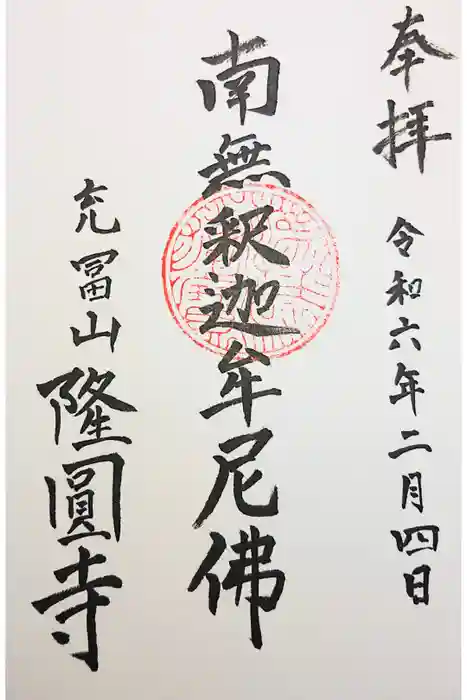 奉拝
令和六年二月四日
南無釈迦牟尼佛
充冨山
隆圓寺